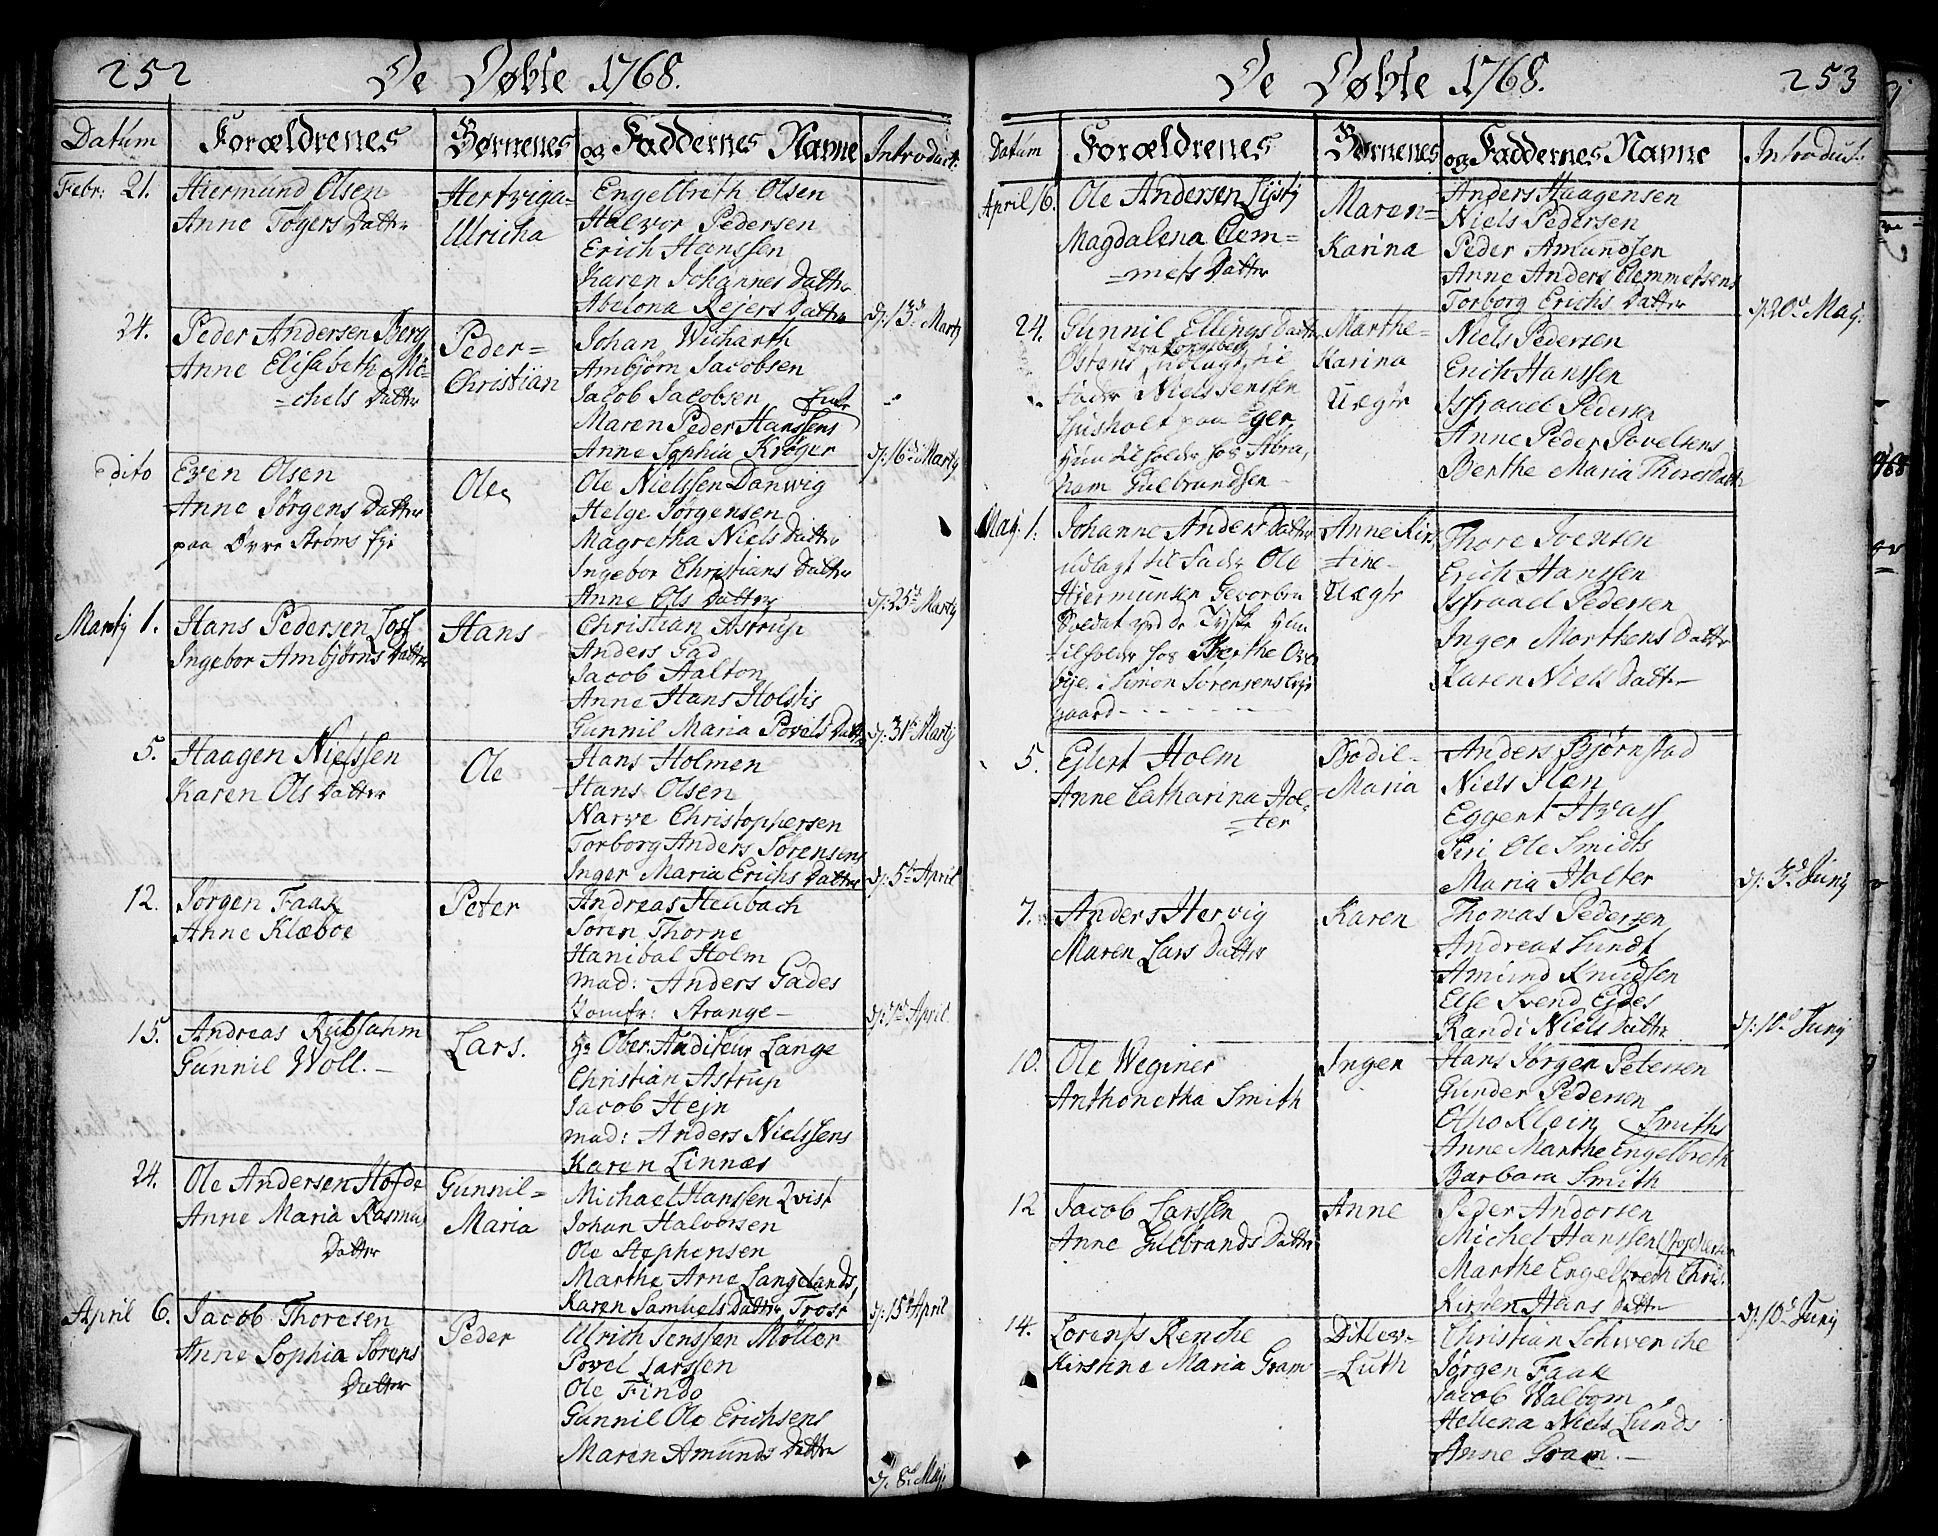 252 De Døbte 1768.
Datum Forældrenes Børnenes og Faddernes Navne Introduct:
Febr: 21. Hiermund Olsen
Anne Togers Datter
Hertviga=
Ulricha
Engelbreth Olsen
Halvor Pedersen
Erich Hanssen
Karen Johannes Datter
Abelona Rejers Datter
d: 13 Martij
24. Peder Andersen Berg
Anne Elisabeth Mi=
=chels Datter
Peder=
Christian
Johan Wicharth
Ambjørn Jacobsen
Jacob Jacobsen
Maren Peder Hanssens
Anne Sophia Krøger
d: 16 Martij
dito Even Olsen
Anne Jørgens Datter
paa Øvre Strøms
Ole
Ole Nielssen Danwig
Helge Jørgensen
Magretha Niels Datter
Ingebor Christians Datter
Anne Ols Datter
d: 25 Martij
Martij 1. Hans Pedersen
Ingebor Ambjørns Datter
Hans
Christian Astrup
Anders Gad
Jacob Aalton
Anne Hans Holstis
Gunnil Maria Povels Datter
d: 31 Martij
5. Haagen Nielssen
Karen Ols Datter
Ole
Hans Holmen
Hans Olsen
Narve Christophersen
Torborg Anders Sørensens
Inger Maria Erichs Datter
d: 5t April
12. Jørgen Faak
Anne Klæboe
Peter
Andreas Heubach
Søren Thorne
Hanibal Holm
Mad: Anders Gades
Jomfr: Strange-
d: April
15. Andreas Rubsahm
Gunnil Woll.-
Lars.
Hr Ober: Auditeur Lange
Christian Astrup
Jacob Hejn
Mad: Anders Nielssens
Karen Linnæs
24. Ole Andersen Hofde
Anne Maria Rasmus
Datter
Gunnil=
Maria
Michael Hanssen Qvist
Johan Halvorsen
Ole Stephensen
Marthe Arne Langelands
Karen Samuels Datter Trost
d: 15 April
April 6. Jacob Thoresen
Anne Sophia Sørens
Datter
Peder
Ulrich Jenssen Møller
Povel Larssen
Ole Findo
Gunnil Ole Erichsens
Maren Amunds Datter
d: 8 Maj
De Døbte 1768. 253
Datum Forældrenes Børnenes og Faddernes Navne Introduct:
April 16. Ole Andersen
Magdalena Clem=
=mets Datter
Maren=
Karina
Anders Haagensen
Niels Pedersen
Peder Amundsen
Anne Anders Clemmetsens
Torborg Erichs Datter
d: 20 Maj.
24. Gunnil Ellings Datter
fra Kongsberg
Østens udlagt til
fader Niels Jenssen
Husholt paa Eger,
Hun tilholder hos Abra,
ham Gulbrandsen
Marthe=
Karina
Uægte
Niels Pedersen
Erich Hanssen
Issraael Pedersen
Anne Peder Povelsens
Berthe Maria Thores Datter
Maj. 1. Johanne Anders Datter
udlagt til fader Ole
Hiermunsen Gevorben
Soldat ved de Tyske Hun
tilholder hos Berthe Over
bye i Simon Sørensens
gaard
Anne Kir,
=tine
Uægte
Thore Joensen
Erich Hanssen
Issraael Pedersen
Inger Morthens Datter
Karen Niels Datter
5. Ejlert Holm
Anne Catharina Hol=
=ter
Bodil=
=Maria
Anders Bjørnstad
Niels Ilen
Eggert Hvass
Siri Ole Smidts
Maria Holter
d: 3d Junij
7. Anders Hervig
Maren Lars Datter
Karen
Thomas Pedersen
Andreas Lundt
Amund Knudsen
Else Svend Ejdes
Randi Niels Datter
d: 10 Junij
10. Ole Weginer
Anthonetha Smith
Inger
Hans Jørgen Petersen
Gunder Pedersen
Otho Klein Smiths
Anne Marthe Engelbreth
Barbara Smith
12 Jacob Larssen
Anne Gulbrands Datter
Anne
Peder Andersen
Michel Hanssen
Marthe Engelbreth Chris
Kirsten Hans Datter
d: 10 Junij
14. Lorents Renche
Kirstine Maria Gram
Ditlev=
=Luth
Christian Schwenche
Jørgen Faak
Jacob Walbom
Hellena Niels Lunds
Anne Gram.-